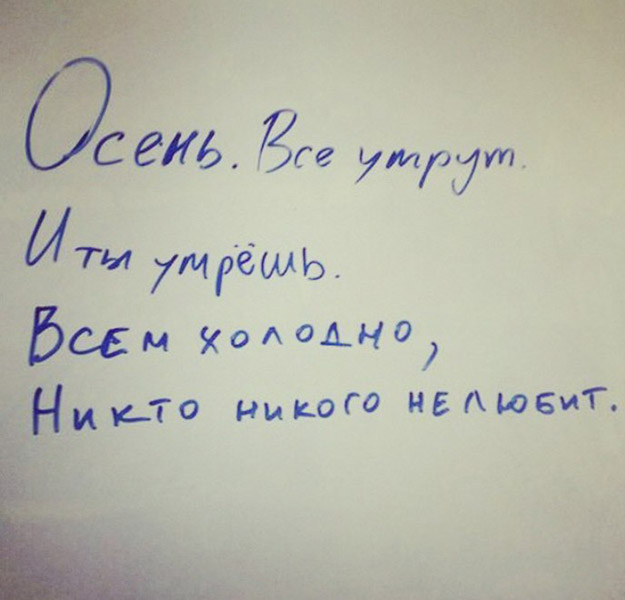 Осень. Все утрут.
И ты умрёшь.
Всем холодно,
Никто никого не любит.